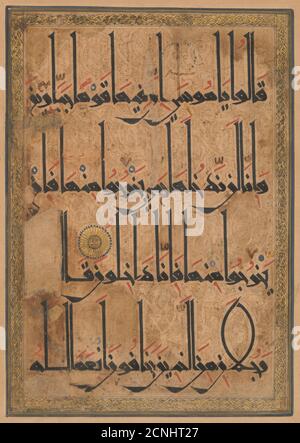 قالوا ياموسى ان فيها قوما جبارين
وانا لن ندخلها حتى يخرجوا منها فان
يخرجوا منها فانا داخلون قا
ل رجلان من الذين يخافون انعم الله
alamy
Image ID: 2CNHT27
www.alamy.com